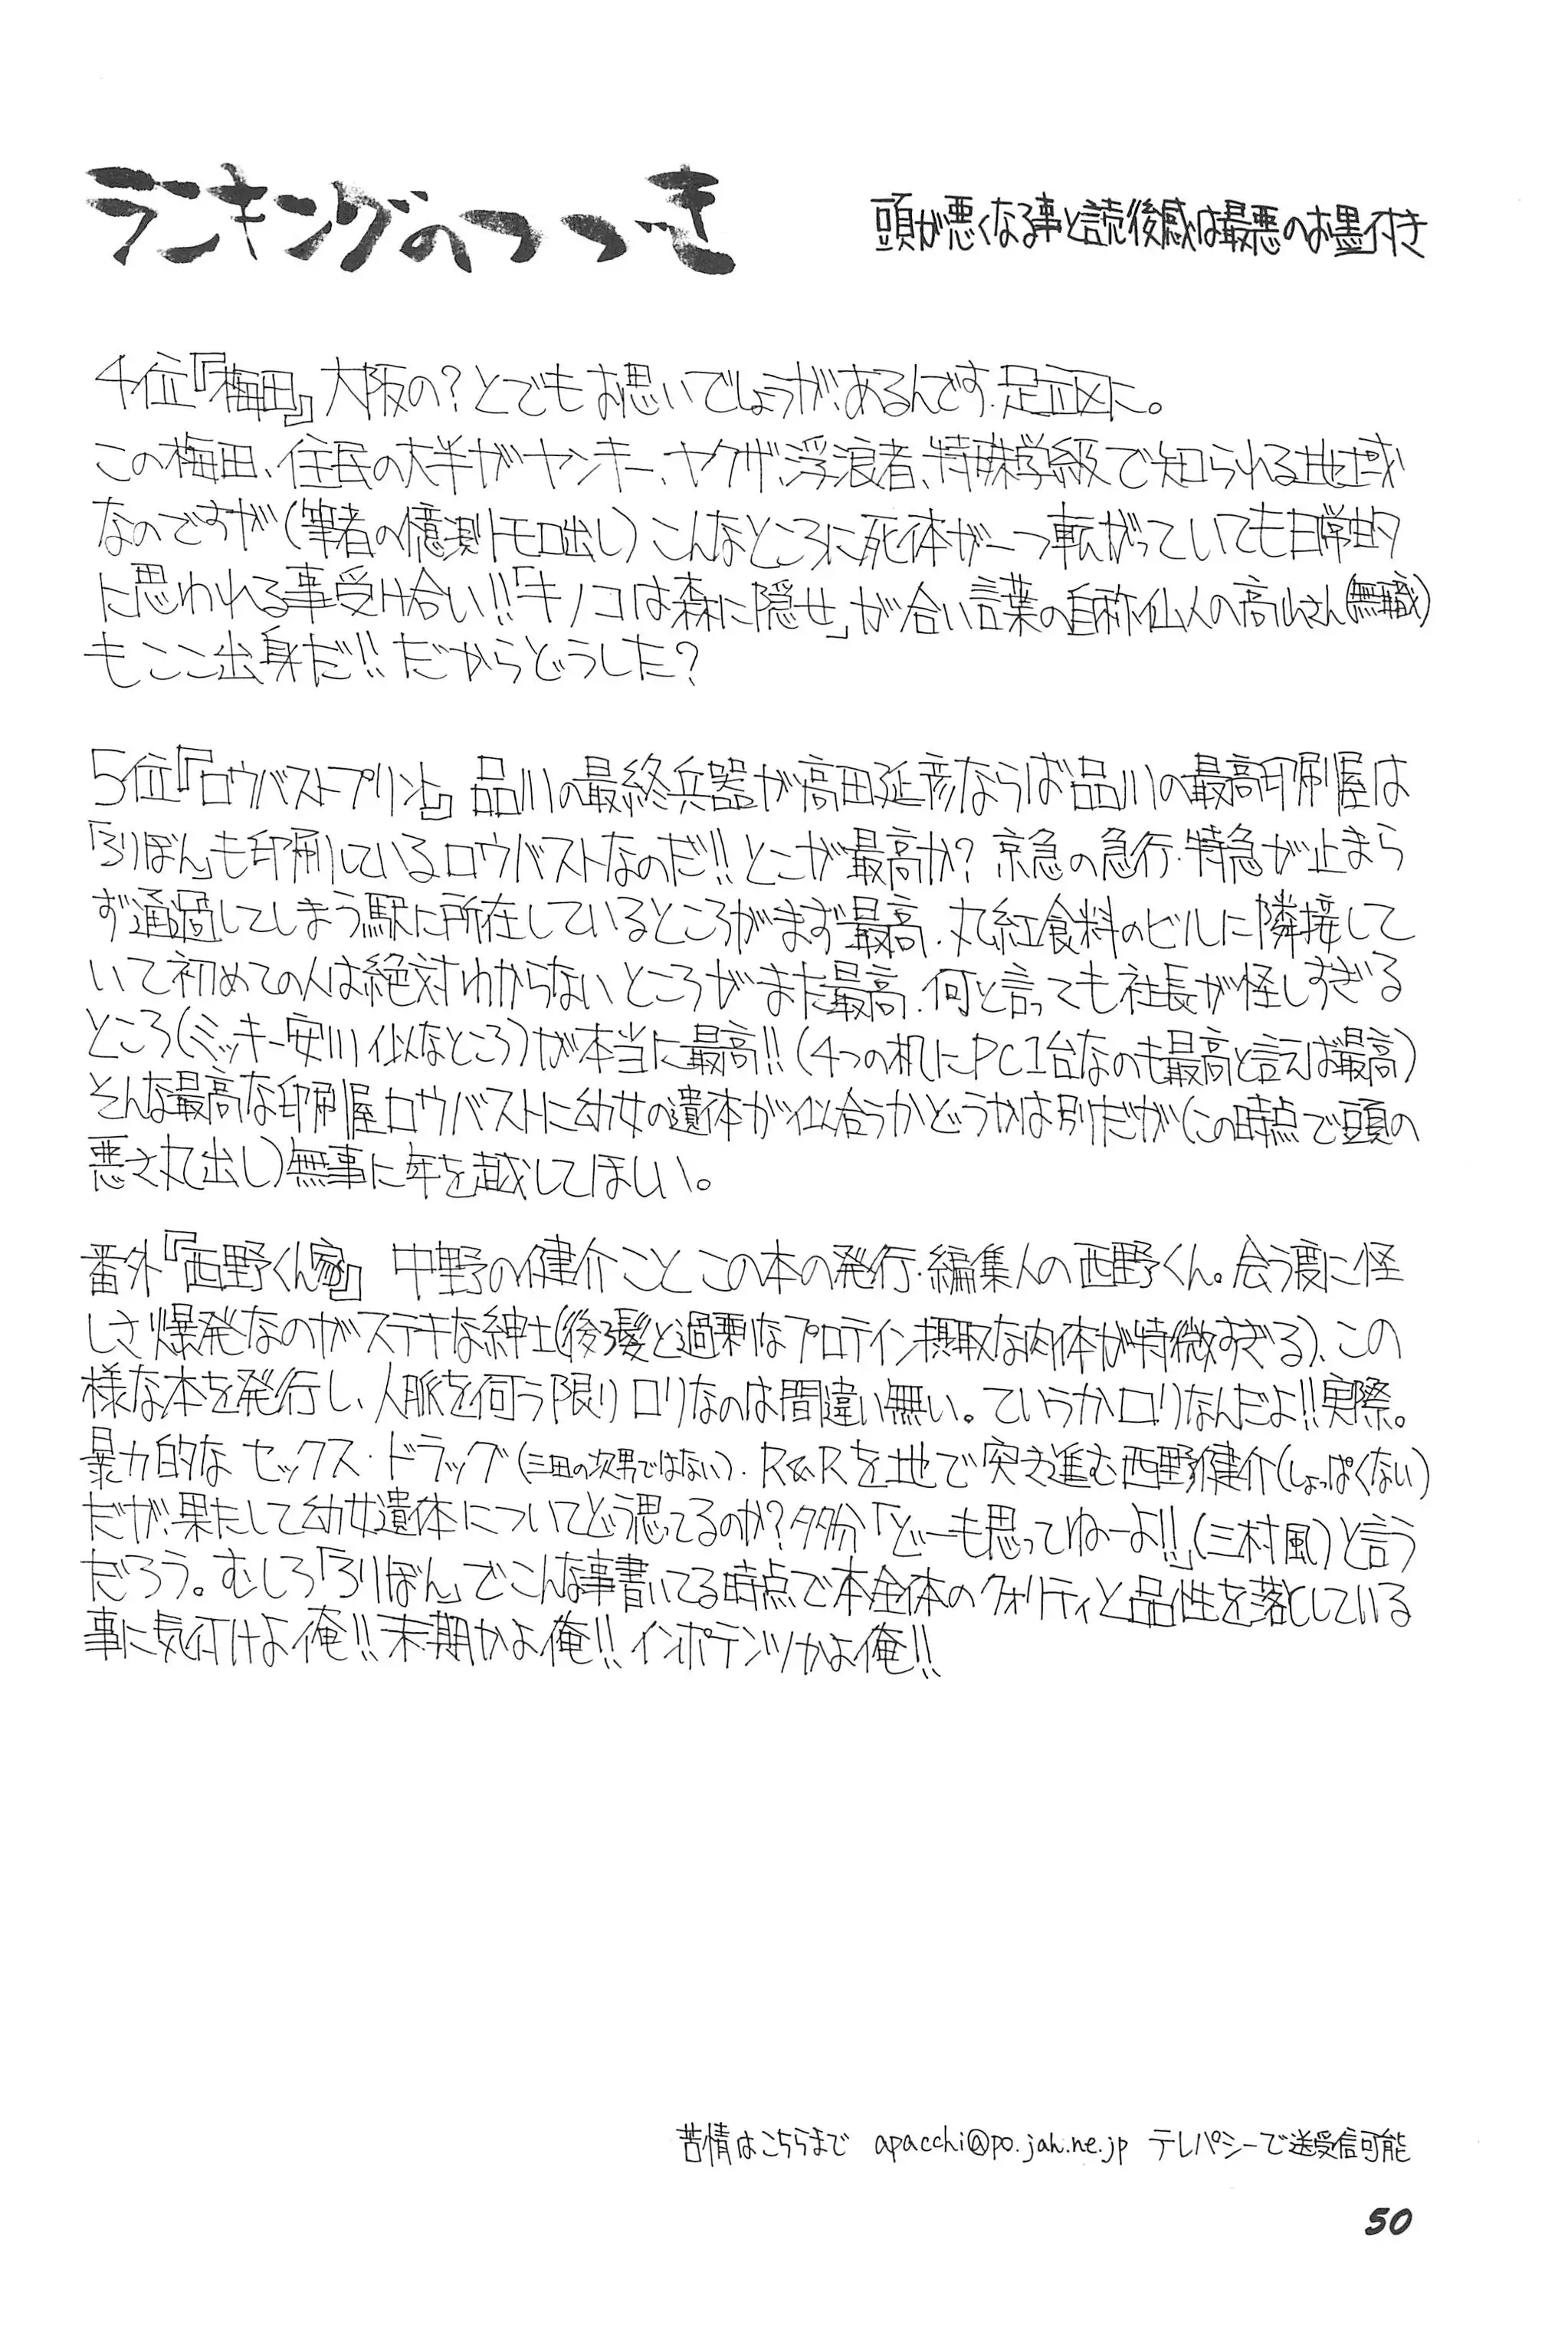 ランキングのつづき
頭が悪くなる事と読後感は最悪のお墨付き
4位『梅田』大阪の?とでもお思いでしょうが、あるんです、足立区に。
この梅田、住民の大半がヤンキー、ヤクザ、浮浪者、特殊学級で知られる地域
なのですが(筆者の憶測トモロ出し)こんなところに死体が一つ転がっていても日常的
に思われる事受け合い!!「キノコは森に隠せ」が合い言葉の自称仙人の高山さん(無職)
もここ出身だ!!だからどうした?
5位『ロウバストプリント』品川の最終兵器が高田延彦ならば品川の最高印刷屋は
「ろりぽん」も印刷しているロウバストなのだ!!どこが最高か?京急の急行・特急が止まら
ず通過してしまう駅に所在しているところがまず最高、丸紅食料のビルに隣接して
いて初めての人は絶対わからないところがまた最高、何と言っても社長が怪しすぎる
ところ(ミッキー安川似なところ)が本当に最高!!(4つの机にPC1台なのも最高と言えば最高)
そんな最高な印刷屋ロウバストに幼女の遺体が似合うかどうかは別だが(この時点で頭の
悪さ丸出し)無事に年を越してほしい。
番外『西野くん家』 中野の健介ことこの本の発行・編集人の西野くん。会う度に怪
しさ爆発なのがステキな紳士(後ろ髪と過剰なプロテイン摂取な肉体が特徴すぎる)、この
様な本を発行し、人脈を伺う限りロリなのは間違い無い。ていうかロリなんだよ!!実際。
暴力的なセックス・ドラッグ(三田の次男ではない)・R&Rを地で突き進む西野健介(しょっぱくない)
だが、果たして幼女遺体についてどう思ってるのか?多分「どーも思ってねーよ!!」(三村風)と言う
だろう。むしろ「ろりぽん」でこんな事書いてる時点で本全体のクォリティと品性を落としている
事に気付けよ俺!!末期かよ俺!!インポテンツかよ俺!!
苦情はこちらまで apacchi@po.jah.ne.jp テレパシーで送受信可能
50